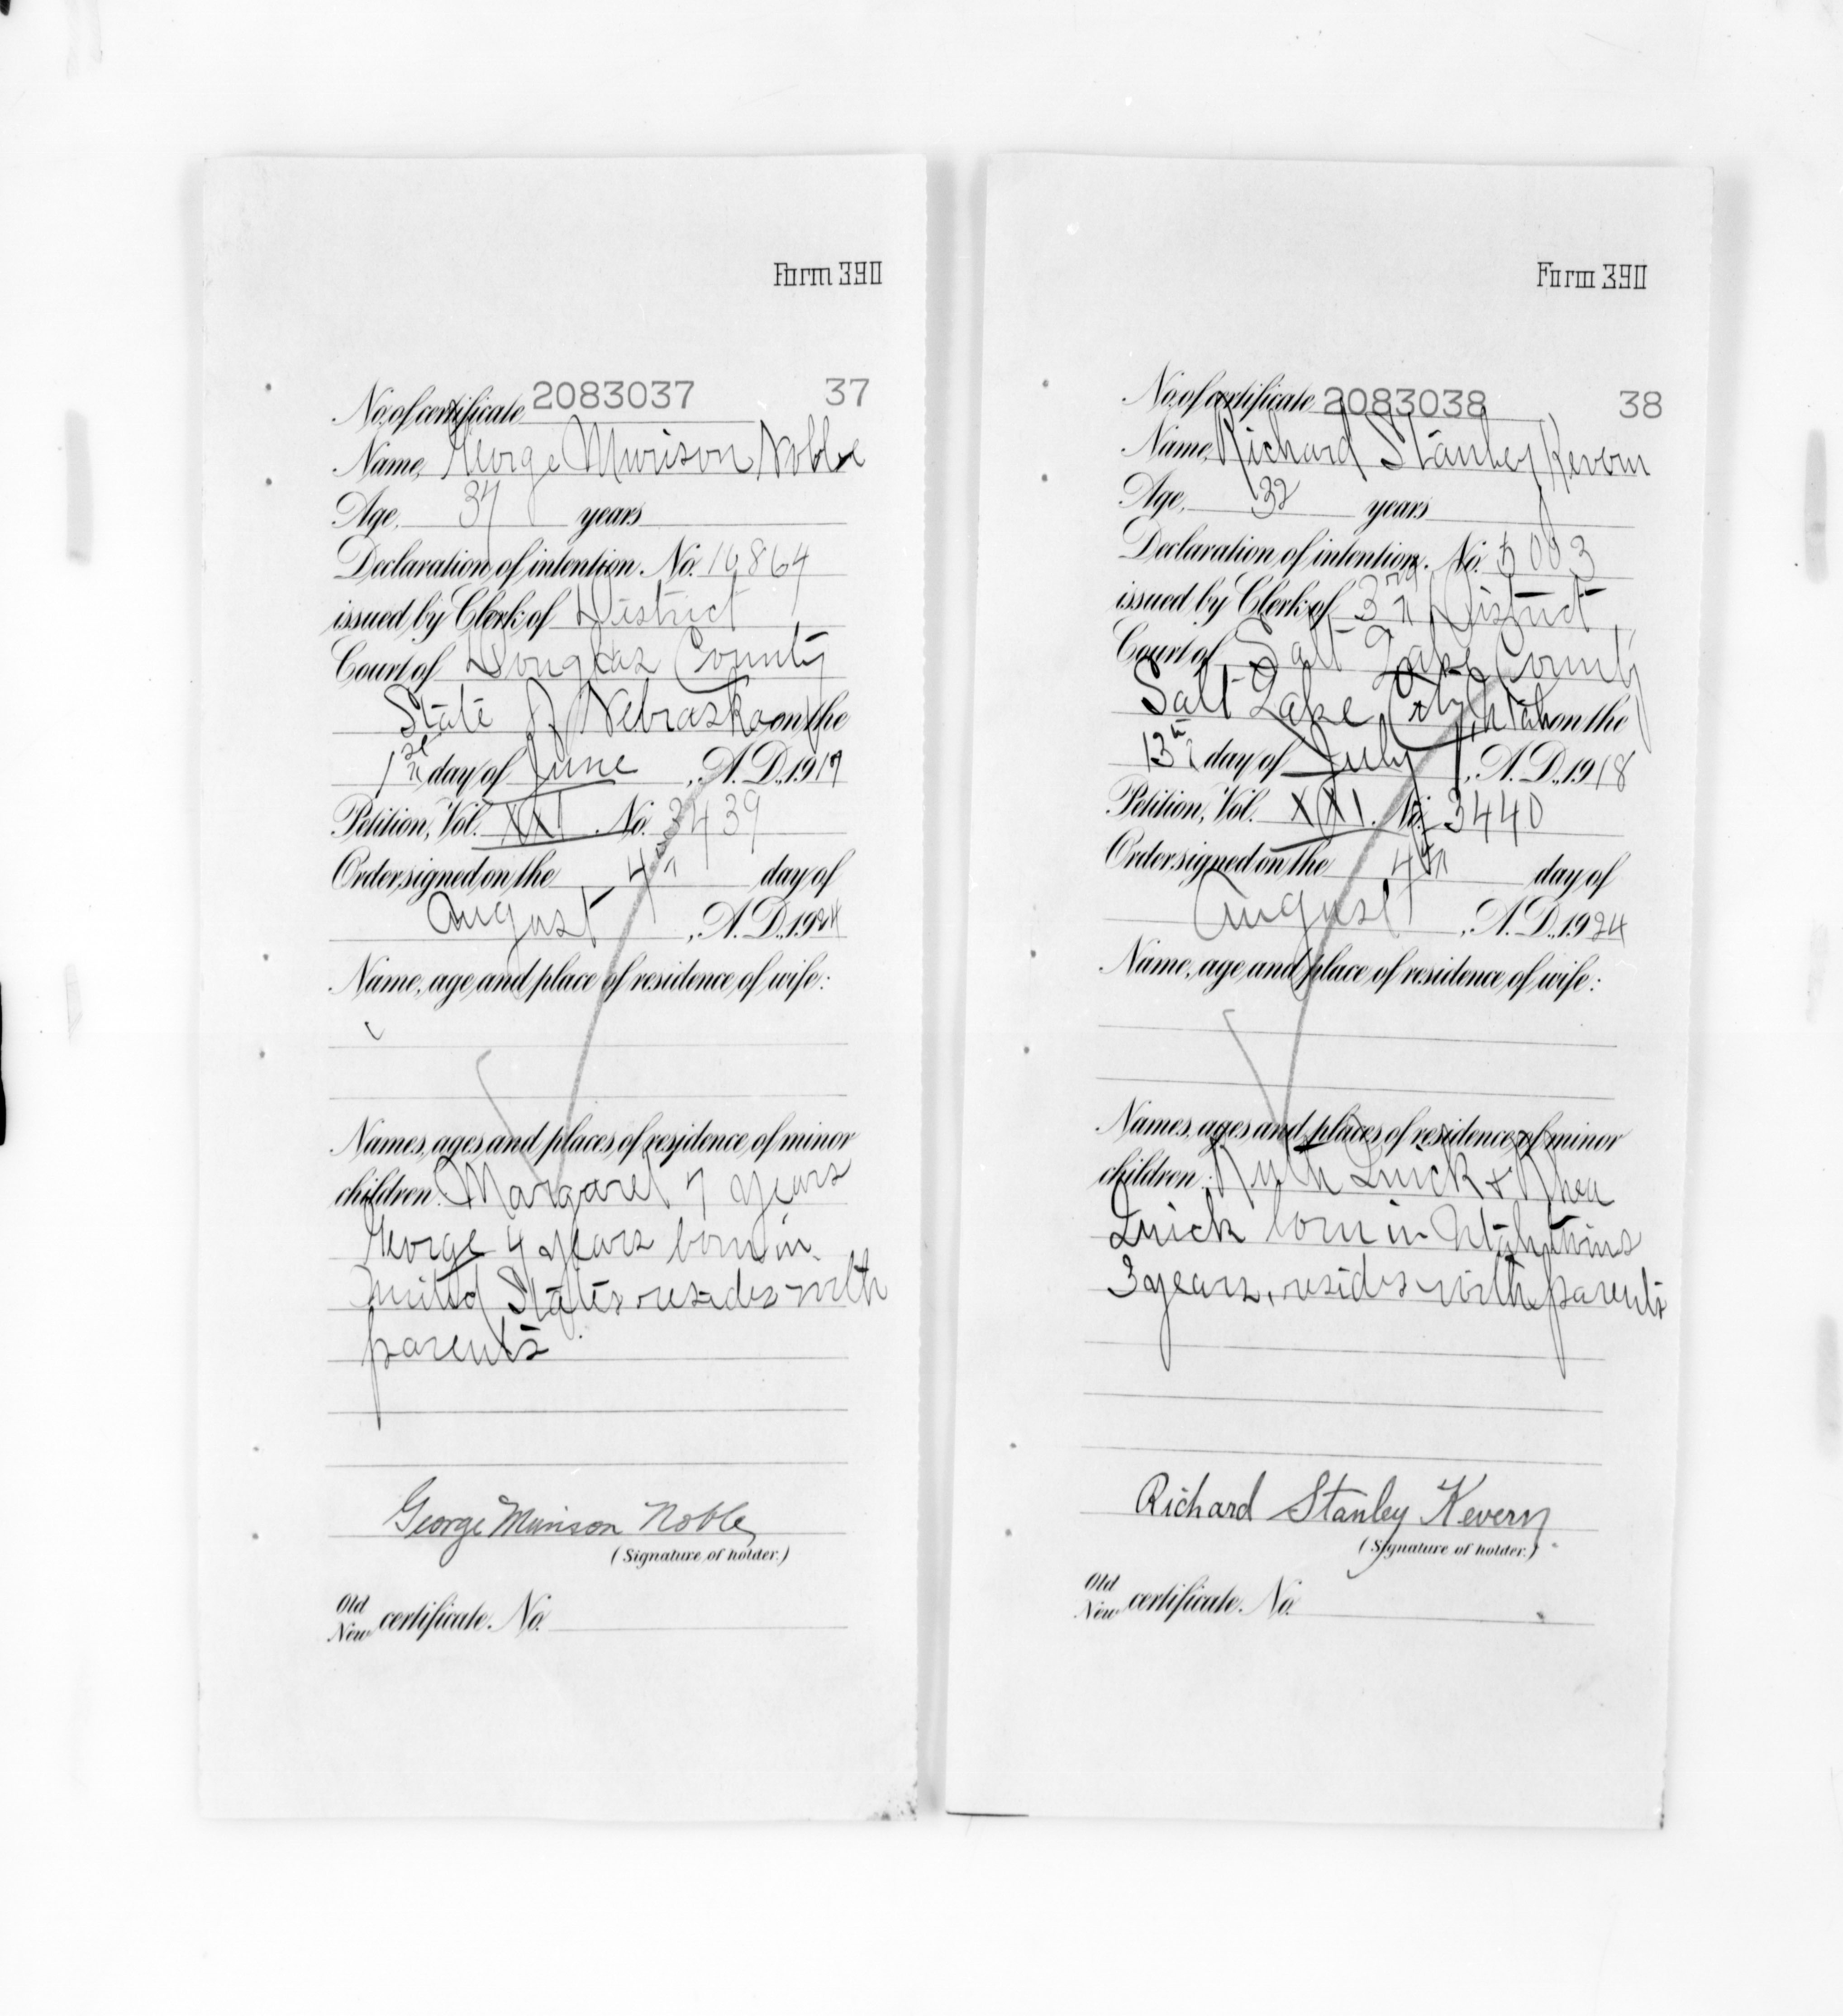 Form 390
No. of certificate 2083037 37
Name, George Murison Noble
Age, 37 years
Declaration of intention. No. 10864
issued by Clerk of District
Court of Douglas County
State of Nebraska on the
1st day of June, A. D., 1917
Petition, Vol. XXI No. 3439
Order signed on the 4th day of
August, A. D., 1924
Name, age and place of residence of wife:
Names, ages and places of residence of minor
children: Margaret 7 years
George 4 years born in
United States resides with
parents.
George Murison Noble
(Signature of holder.)
Old
New certificate. No.
Form 390
No. of certificate 2083038 38
Name, Richard Stanley Kevern
Age, 32 years
Declaration of intention. No. 5003
issued by Clerk of 3rd District
Court of Salt Lake County
Salt Lake City, Utah on the
13th day of July, A. D., 1918
Petition, Vol. XXI. No. 3440
Order signed on the 4th day of
August, A. D., 1924
Name, age and place of residence of wife:
Names, ages and places of residence of minor
children: Ruth & Rhea
born in Utah, twins
3 years, resides with parents
Richard Stanley Kevern
(Signature of holder.)
Old
New certificate. No.